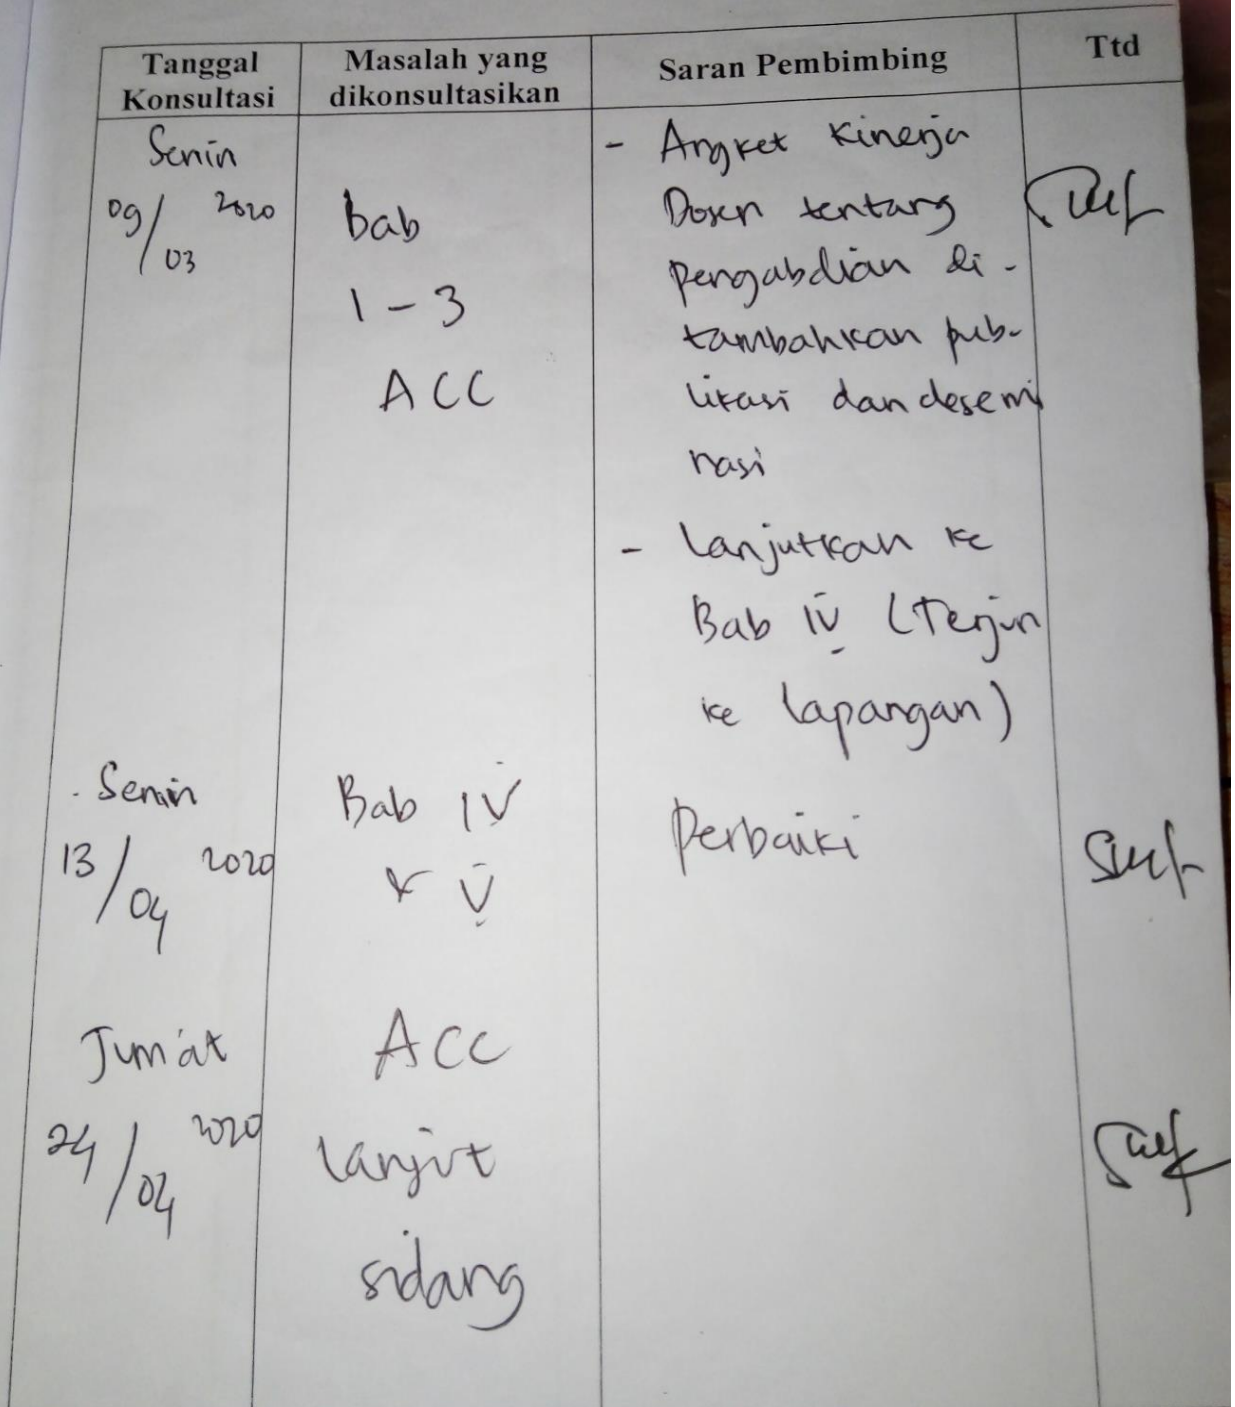 Tanggal Konsultasi
Masalah yang dikonsultasikan
Saran Pembimbing
Ttd
Senin
09/03 2020
Bab
1 - 3
ACC
- Angket Kinerja
Dosen tentang
pengabdian di -
tambahkan pub-
likasi dan desemi
nasi
- Lanjutkan ke
Bab IV (Terjun
ke lapangan)
Senin
13/04 2020
Bab IV
& V
Perbaiki
Jum'at
24/04 2020
ACC
Lanjut
sidang